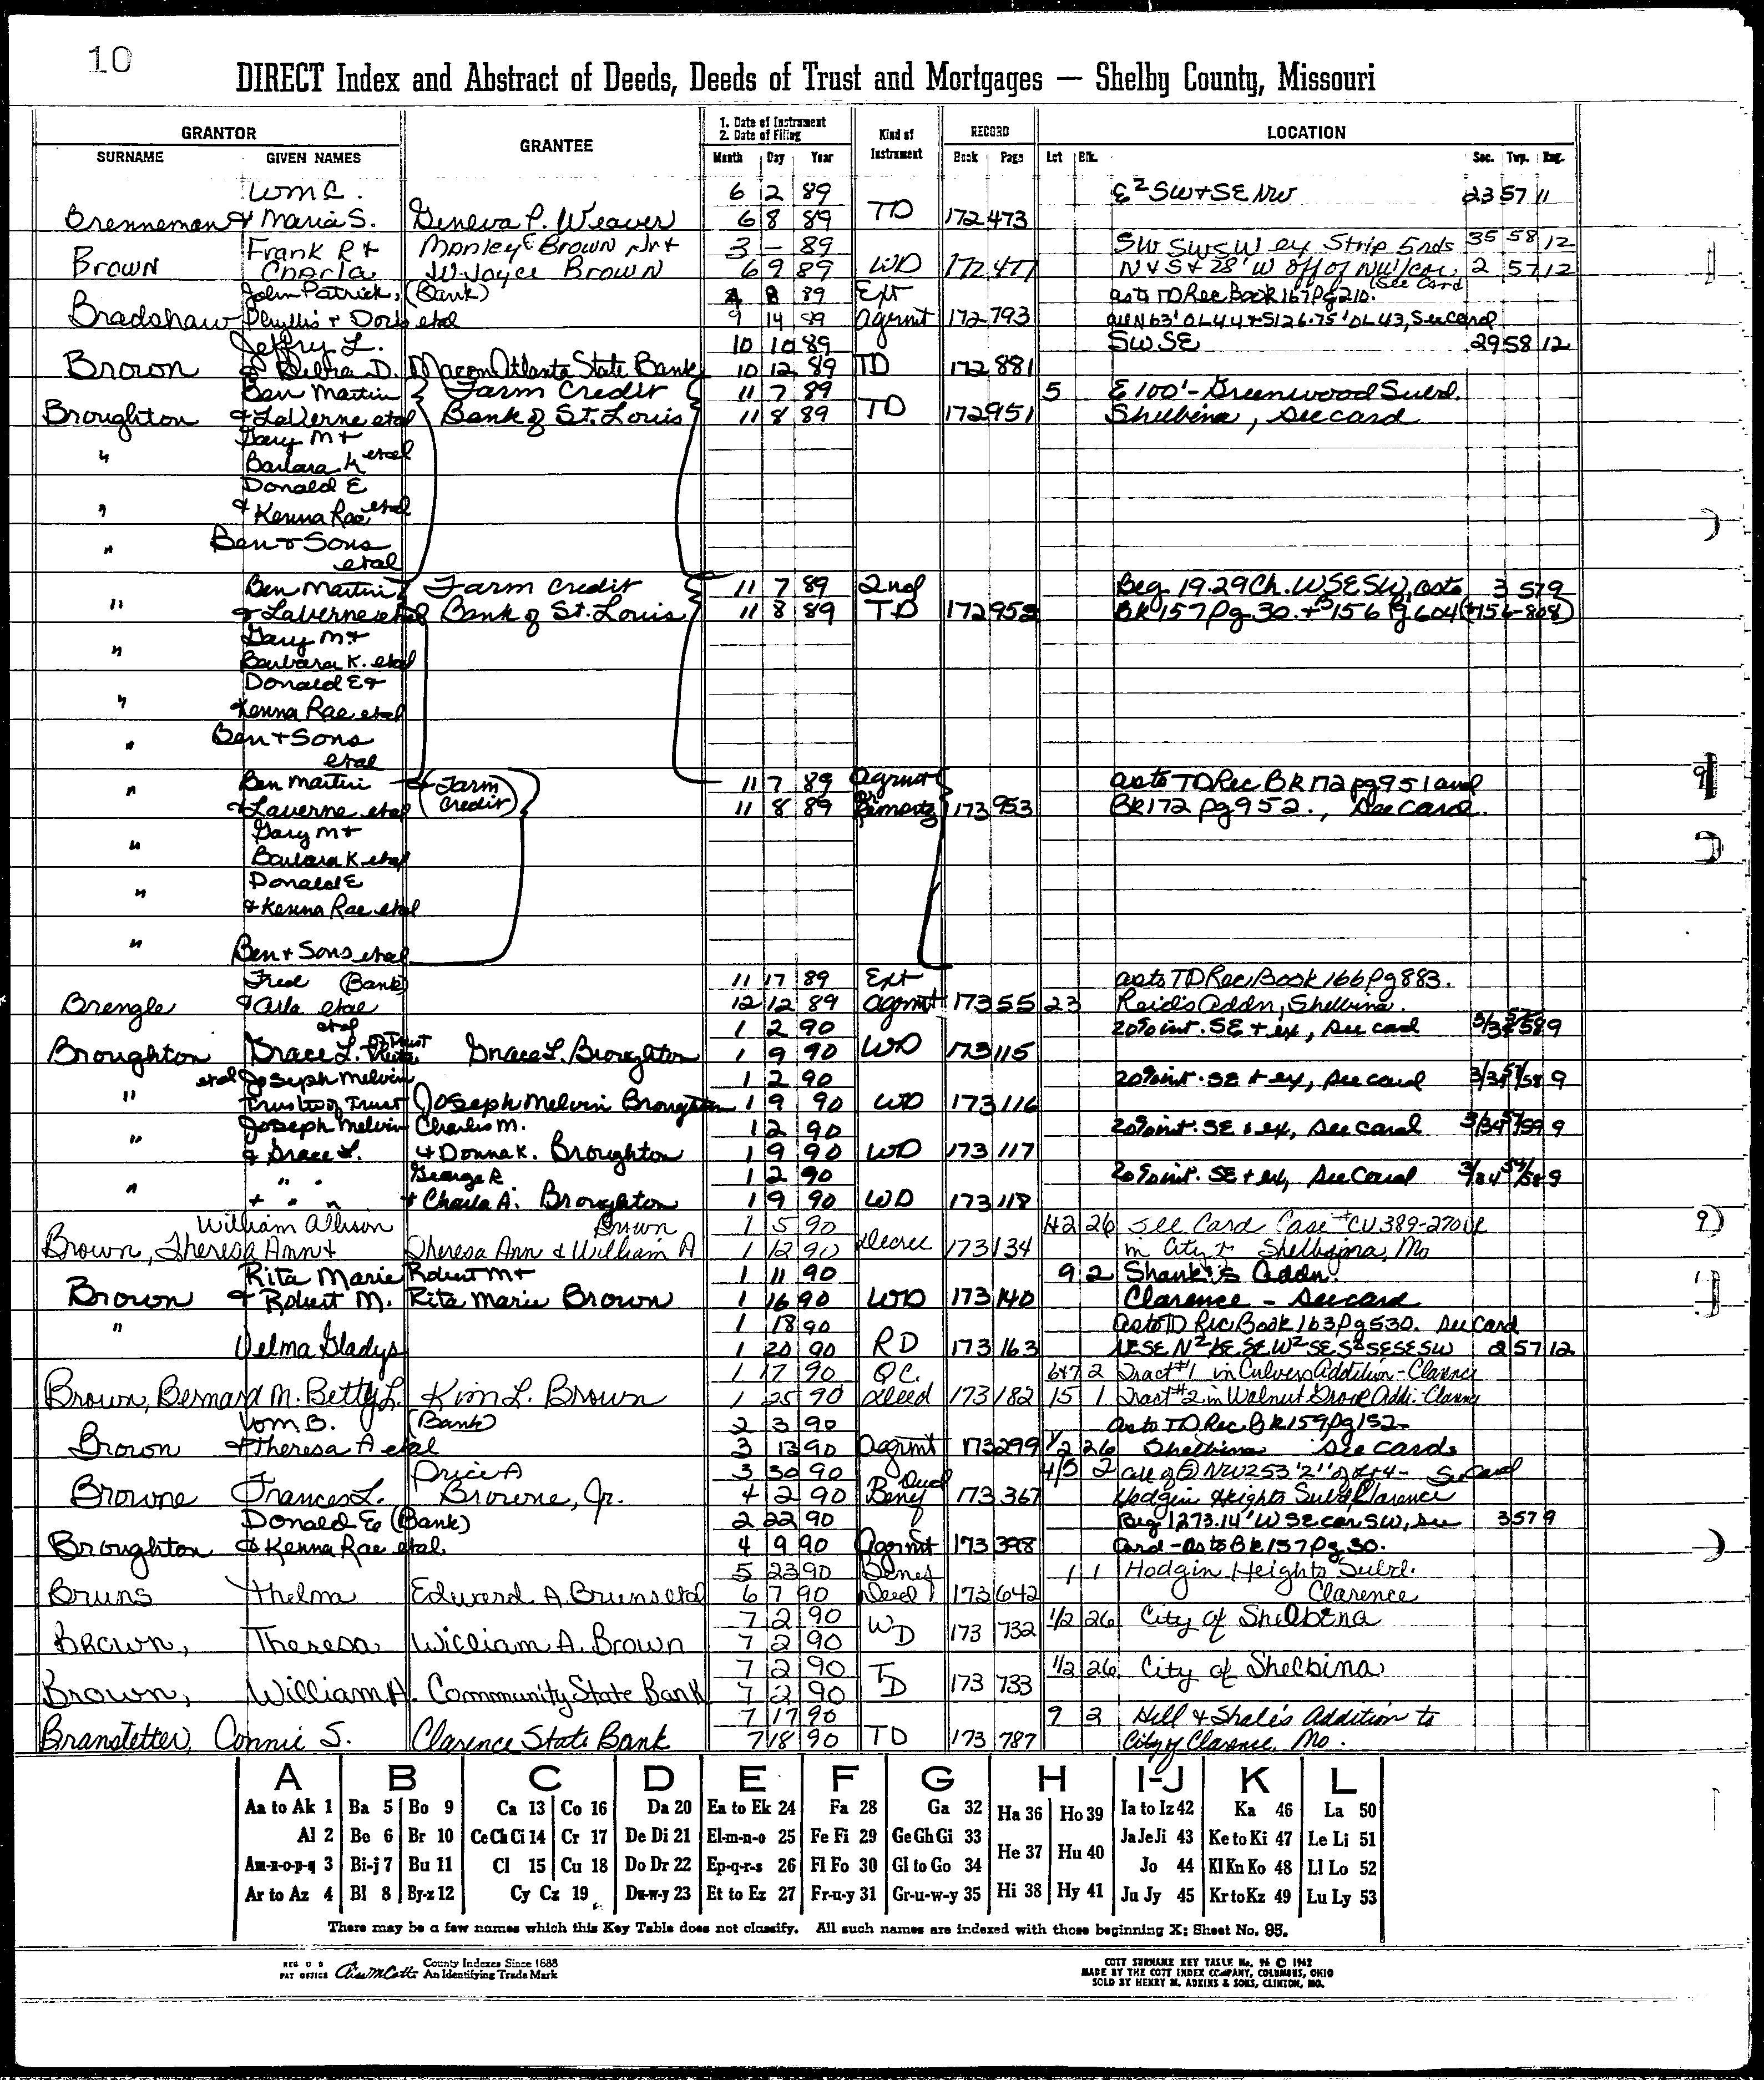 10
DIRECT Index and Abstract of Deeds, Deeds of Trust and Mortgages — Shelby County, Missouri
GRANTOR GRANTEE 1. Date of Instrument 2. Date of Filing Kind of Instrument RECORD LOCATION
SURNAME GIVEN NAMES Month Day Year Book Page Lot Blk. Sec. Twp. Rng.
Wm C. 6 2 89 E² SW + SE NW 23 57 11
Brenneman & Maria S. Geneva P. Weaver 6 8 89 TD 172 473
Frank R + Manley E Brown Jr + 3 — 89 SW SWSW ex Strip Ends 35 58 12
Brown Charla W Joyce Brown 6 9 89 WD 172 477 N & S + 28' W off of NW/cor, 2 57 12
John Patrick, (Bank) 8 89 Ext as to TD Rec Book 167 Pg 210. (See Card
Bradshaw Phyllis + Doris etal 9 14 89 agrmt 172 793 all N 63' OL 44 + S126.75' OL 43, See card
Jeffry L. 10 10 89 SW SE 29 58 12
Brown & Debra D. Macon Atlanta State Bank 10 12 89 TD 172 881
Ben Martin Farm Credit 11 7 89 5 E 100' - Greenwood Subd.
Broughton & LaVerne etal Bank of St. Louis 11 8 89 TD 172 951 Shelbina, See card
Gary M +
" Barbara K etal
Donald E
" & Kenna Rae etal
" Ben + Sons
etal
Ben Martin Farm Credit 11 7 89 2nd Beg 19.29 Ch. W SE SW, as to 3 57 9
" & Laverne etal Bank of St. Louis 11 8 89 TD 172 952 BK 157 Pg 30. + B 156 Pg 604 (+ 156-808)
Gary M +
" Barbara K. etal
Donald E +
" Kenna Rae etal
" Ben + Sons
etal
Ben Martin & (Farm 11 7 89 agrmt as to TD Rec BK 172 pg 951 and
" & Laverne etal Credit) 11 8 89 173 953 BK 172 pg 952., See Card.
Gary M +
" Barbara K. etal
Donald E
" & Kenna Rae etal
" Ben + Sons etal
Fred (Bank) 11 17 89 Ext as to TD Rec Book 166 Pg 883.
Brengle & Arla etal 12 12 89 agrmt 173 55 23 Reid's Addn, Shelbina.
etal 1 2 90 20% int. SE + ex, See card 3/34 57/58 9
Broughton Grace L. of Trust Grace L. Broughton 1 9 90 WD 173 115
etal Joseph Melvin 1 2 90 20% int. SE + ex, See card 3/34 57/58 9
" Trustee of Trust Joseph Melvin Broughton 1 9 90 WD 173 116
Joseph Melvin Charles M. 1 2 90 20% int. SE + ex, See card 3/34 57/58 9
" & Grace L. & Donna K. Broughton 1 9 90 WD 173 117
" " George R 1 2 90 20% int. SE + ex, See Card 3/34 57/58 9
" + " " + Charla A. Broughton 1 9 90 WD 173 118
William Allison Brown 1 5 90 1+2 26 See Card Case #CV389-270
Brown, Theresa Ann + Theresa Ann & William A 1 12 90 Decree 173 134 in City of Shelbina, Mo
Rita Marie Robert M + 1 11 90 9 2 Shank's Addn.
Brown & Robert M. Rita Marie Brown 1 16 90 WD 173 140 Clarence - See card
" 1 18 90 as to TD Rec Book 163 Pg 530. See Card
Velma Gladys 1 20 90 RD 173 163 NESE N² SE SE W² SE S² SE SE SW 2 57 12
1 17 90 QC. 6+7 2 Tract #1 in Culvers Addition - Clarence
Brown, Bernard M. Betty L. Kim L. Brown 1 25 90 Deed 173 182 15 1 Tract #2 in Walnut Grove Addi. Clarence
Tom B. (Bank) 2 3 90 as to TD Rec BK 159 Pg 152
Brown & Theresa A etal 3 13 90 Agrmt 173 299 1/2 26 Shelbina See Cards
Price A 3 30 90 Deed 4/5 2 all of 5 NW 253'2" of Lt 4 - See Card
Browne Frances L. Browne, Jr. 4 2 90 Benef 173 367 Hodgin Heights Subd, Clarence
Donald E (Bank) 2 22 90 Beg 1273.14' W SE cor SW, See 3 57 9
Broughton & Kenna Rae etal 4 9 90 Agrmt 173 398 Card - as to BK 157 Pg 30.
5 23 90 Benef 1 1 Hodgin Heights Subd.
Bruns Thelma Edward A. Bruns etal 6 7 90 Deed 173 642 Clarence
7 2 90 WD 1/2 26 City of Shelbina
Brown, Theresa William A. Brown 7 2 90 173 732
7 2 90 TD 1/2 26 City of Shelbina
Brown, William A. Community State Bank 7 2 90 173 733
7 17 90 9 2 Hill & Shale's Addition to
Branstetter, Connie S. Clarence State Bank 7 18 90 TD 173 787 City of Clarence, Mo.
A B C D E F G H I-J K L
Aa to Ak 1 Ba 5 Bo 9 Ca 13 Co 16 Da 20 Ea to Ek 24 Fa 28 Ga 32 Ha 36 Ho 39 Ia to Iz 42 Ka 46 La 50
Al 2 Be 6 Br 10 Ce Ch Ci 14 Cr 17 De Di 21 El-m-n-o 25 Fe Fi 29 Ge Gh Gi 33 He 37 Hu 40 Ja Je Ji 43 Ke to Ki 47 Le Li 51
Am-n-o-p-q 3 Bi-j 7 Bu 11 Cl 15 Cu 18 Do Dr 22 Ep-q-r-s 26 Fl Fo 30 Gl to Go 34 Jo 44 Kl Kn Ko 48 Ll Lo 52
Ar to Az 4 Bl 8 By-z 12 Cy Cz 19 Du-w-y 23 Et to Ez 27 Fr-u-y 31 Gr-u-w-y 35 Hi 38 Hy 41 Ju Jy 45 Kr to Kz 49 Lu Ly 53
There may be a few names which this Key Table does not classify. All such names are indexed with those beginning X; Sheet No. 95.
REG U S PAT OFFICE County Indexes Since 1888 An Identifying Trade Mark
COTT SURNAME KEY TABLE No. 96 © 1962
MADE BY THE COTT INDEX COMPANY, COLUMBUS, OHIO
SOLD BY HENRY M. ADKINS & SONS, CLINTON, MO.